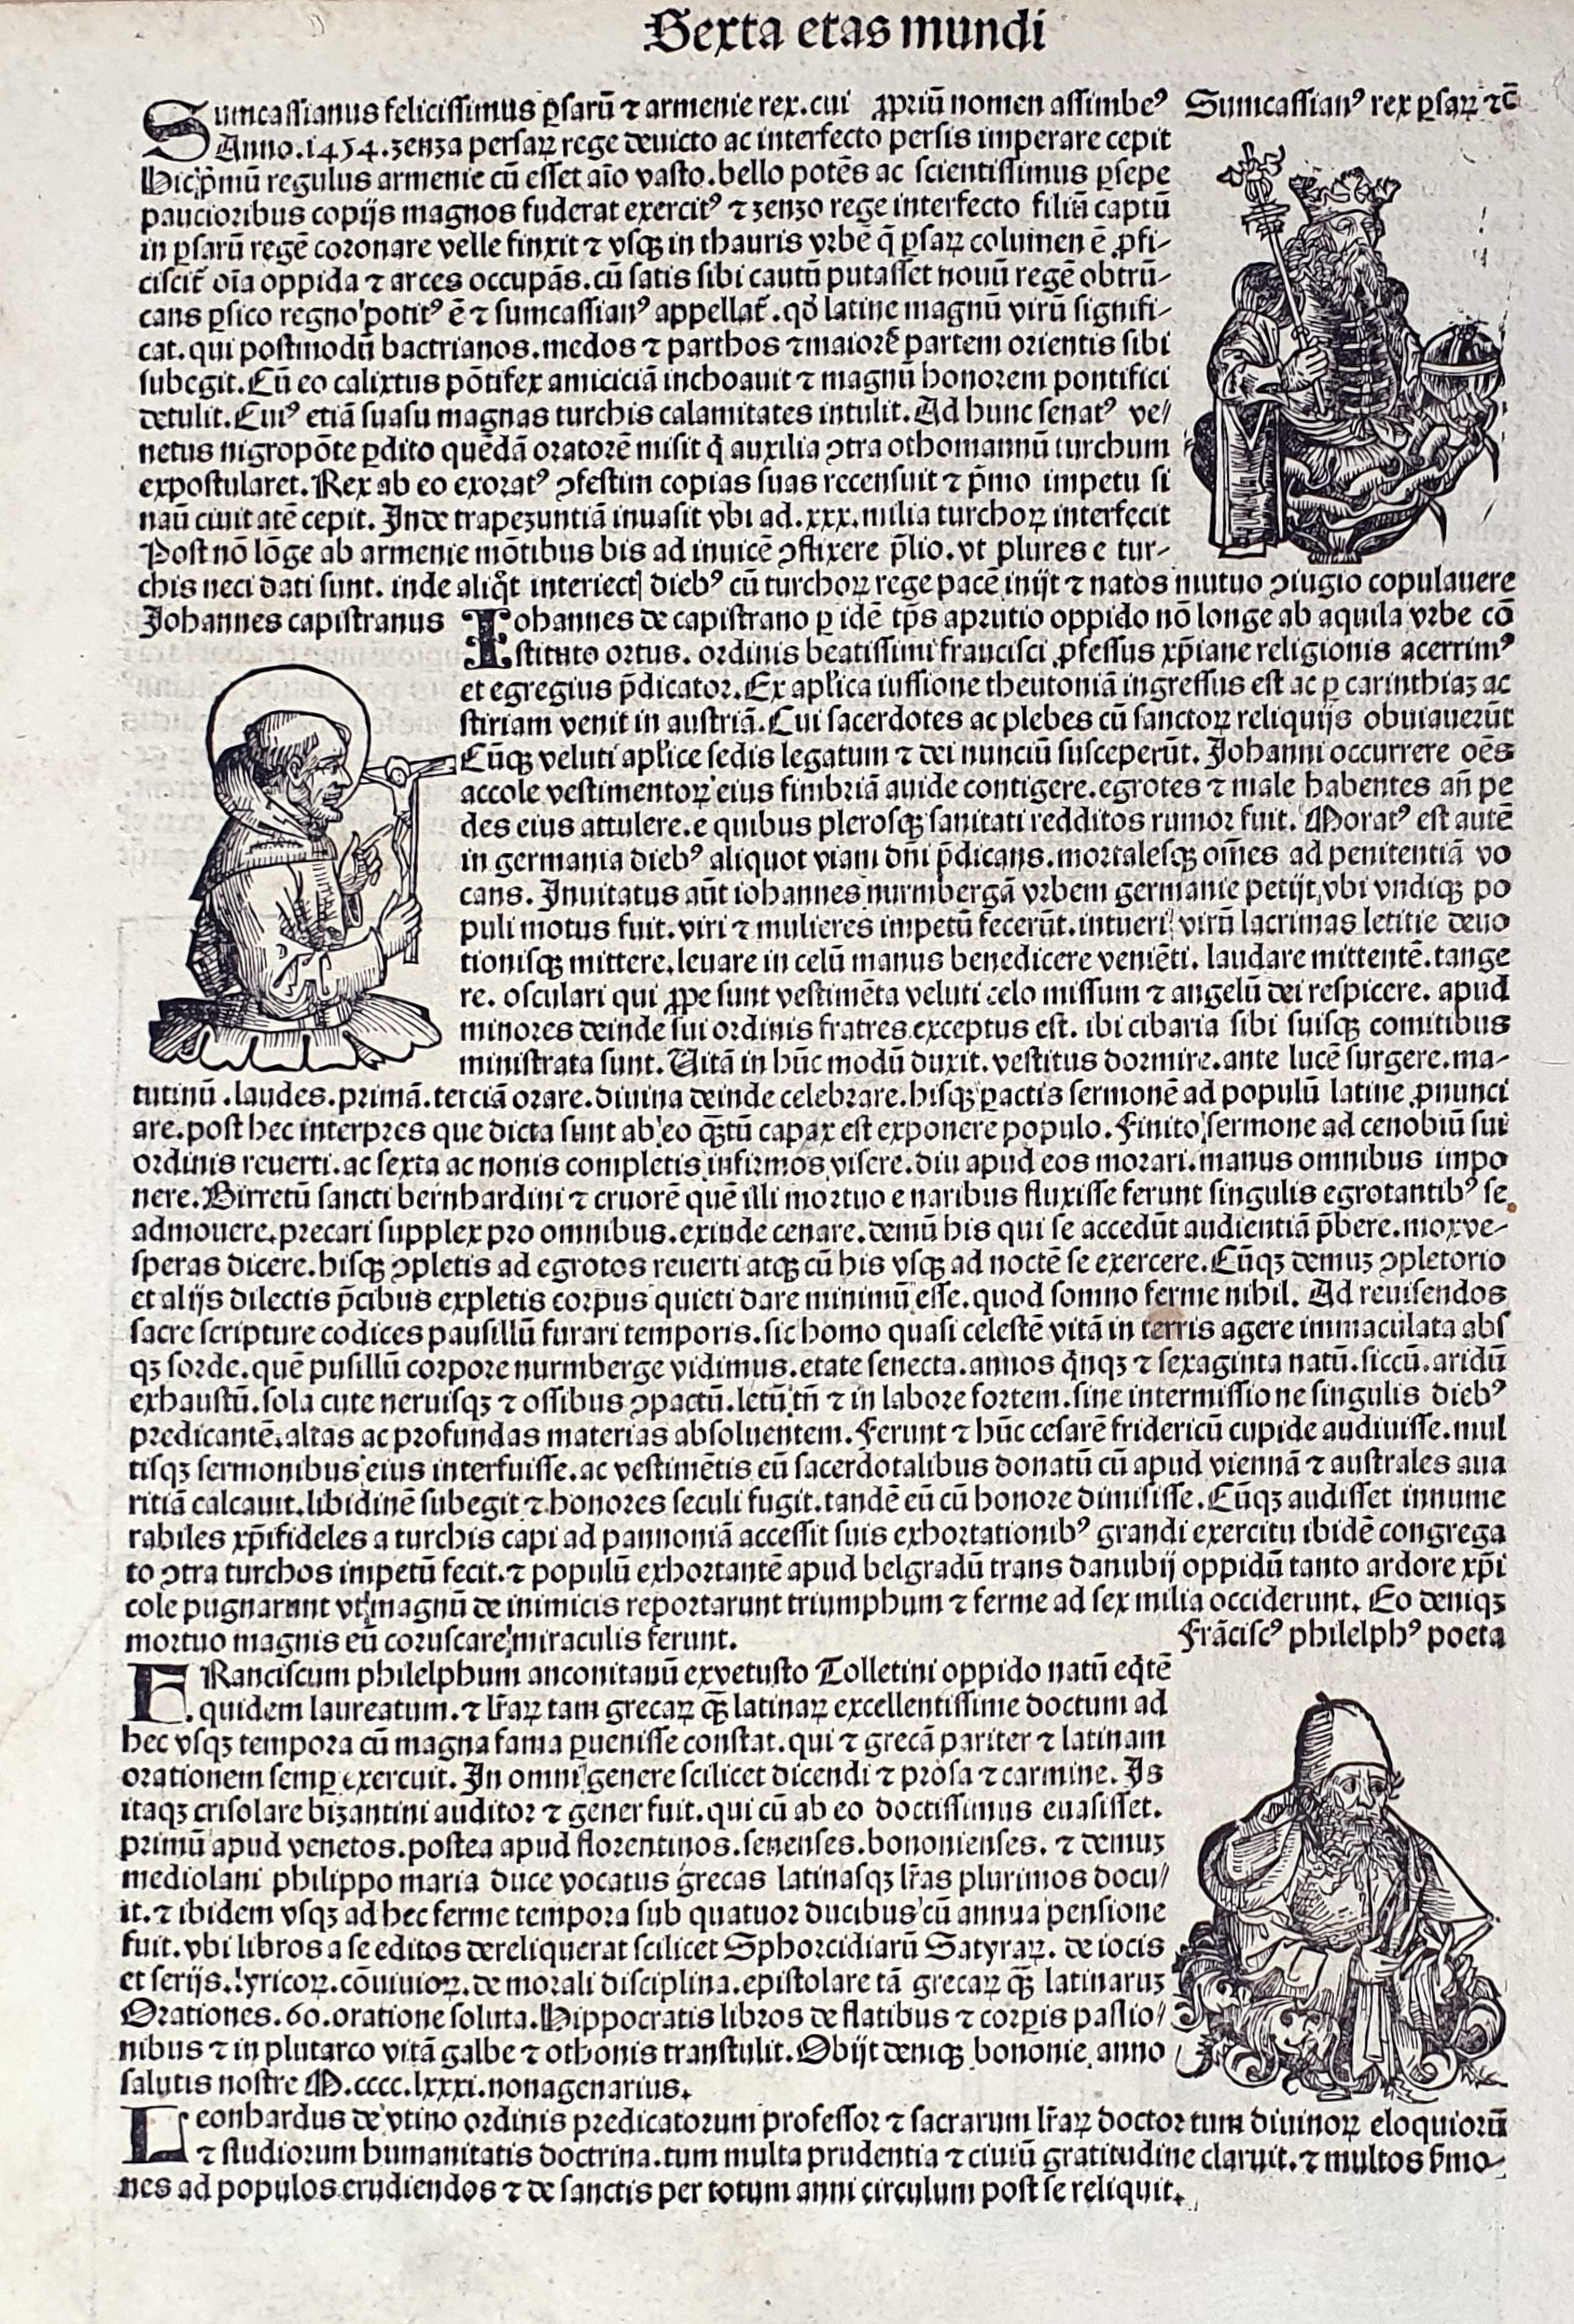 Sexta etas mundi
Sumcassianus felicissimus ꝑsarū ⁊ armenie rex.cui ꝓpriū nomen assimbeꝰ
Sumcassianꝰ rex ꝑsaꝝ ⁊c̄
Anno.1454.zenza persaꝝ rege deuicto ac interfecto persis imperare cepit
Hic p̄mū regulus armenie cū esset aīo vasto.bello potēs ac scientissimus ꝑsepe
paucioribus copijs magnos fuderat exercitꝰ ⁊ zenzo rege interfecto filiū captū
in ꝑsarū regē coronare velle finxit ⁊ vsqꝫ in thauris vrbē q̄ ꝑsaꝝ columen ē ꝓfi-
ciscit̄ oīa oppida ⁊ arces occupās.cū satis sibi cautū putasset nouū regē obtrū-
cans ꝑsico regno potitꝰ ē ⁊ sumcassianꝰ appellat̄.qd̓ latine magnū virū signifi-
cat.qui postmodū bactrianos.medos ⁊ parthos ⁊ maiorē partem orientis sibi
subegit.Cū eo calixtus pōtifex amiciciā inchoauit ⁊ magnū honorem pontifici
detulit.Cuiꝰ etiā suasu magnas turchis calamitates intulit.Ad hunc senatꝰ ve-
netus nigropōte ꝑdito quēdā oratorē misit q̄ auxilia ꝯtra othomannū turchum
expostularet.Rex ab eo exoratꝰ ꝯfestim copias suas recensuit ⁊ p̄mo impetu si
naū ciuitatē cepit. Inde trapezuntiā inuasit vbi ad.xxx.milia turchoꝝ interfecit
Post nō lōge ab armenie mōtibus bis ad inuicē ꝯflixere p̄lio.vt plures e tur-
chis neci dati sunt. inde aliq̄t interiect diebꝰ cū turchoꝝ rege pacē inijt ⁊ natos mutuo ꝯiugio copulauere
Johannes capistranus
Iohannes de capistrano ꝑ idē tp̄s aprutio oppido nō longe ab aquila vrbe cō
stituto ortus. ordinis beatissimi francisci ꝓfessus xp̄iane religionis acerrimꝰ
et egregius p̄dicator.Ex apl̓ica iussione theutoniā ingressus est ac ꝑ carinthiaꝫ ac
stiriam venit in austriā.Cui sacerdotes ac plebes cū sanctoꝝ reliquijs obuiauerūt
Cūqꝫ veluti apl̓ice sedis legatum ⁊ dei nunciū susceperūt. Johanni occurrere oēs
accole vestimentoꝝ eius fimbriā auide contigere.egrotes ⁊ male habentes añ pe
des eius attulere.e quibus plerosqꝫ sanitati redditos rumor fuit. Moratꝰ est autē
in germania diebꝰ aliquot viam dn̄i p̄dicans.mortalesqꝫ om̄es ad penitentiā vo
cans. Inuitatus aūt iohannes nurmbergā vrbem germanie petijt,vbi vndiqꝫ po
puli motus fuit.viri ⁊ mulieres impetū fecerūt.intueri virū lacrimas letitie deuo
tionisqꝫ mittere.leuare in celū manus benedicere veniēti. laudare mittentē.tange
re. osculari qui ꝓpe sunt vestimēta veluti celo missum ⁊ angelū dei respicere. apud
minores deinde sui ordinis fratres exceptus est. ibi cibaria sibi suisqꝫ comitibus
ministrata sunt. Uitā in hūc modū duxit.vestitus dormire.ante lucē surgere.ma-
tutinū.laudes.primā.terciā orare.diuina deinde celebrare.hisqꝫ ꝑactis sermonē ad populū latine ꝓnunci
are.post hec interpres que dicta sunt ab eo qꝫtū capax est exponere populo.Finito sermone ad cenobiū sui
ordinis reuerti.ac sexta ac nonis completis infirmos visere.diu apud eos morari.manus omnibus impo
nere.Birretū sancti bernhardini ⁊ cruorē quē illi mortuo e naribus fluxisse ferunt singulis egrotantibꝰ se
admouere.precari supplex pro omnibus.exinde cenare.demū his qui se accedūt audientiā p̄bere.mox ve-
speras dicere.hisqꝫ ꝯpletis ad egrotos reuerti atqꝫ cū his vsqꝫ ad noctē se exercere.Cūqꝫ demuꝫ ꝯpletorio
et alijs dilectis p̄cibus expletis corpus quieti dare minimū esse.quod somno ferme nihil. Ad reuisendos
sacre scripture codices pausillū furari temporis.sic homo quasi celestē vitā in terris agere immaculata abs
qꝫ sorde.quē pusillū corpore nurmberge vidimus.etate senecta.annos q̄nqꝫ ⁊ sexaginta natū.siccū.aridū
exhaustū.sola cute neruisqꝫ ⁊ ossibus ꝯpactū.letū tn̄ ⁊ in labore fortem.sine intermissione singulis diebꝰ
predicantē.altas ac profundas materias absoluentem.Ferunt ⁊ hūc cesarē fridericū cupide audiuisse.mul
tisqꝫ sermonibus eius interfuisse.ac vestimētis eū sacerdotalibus donatū cū apud viennā ⁊ australes aua
ritiā calcauit.libidinē subegit ⁊ honores seculi fugit.tandē eū cū honore dimisisse.Cūqꝫ audisset innume
rabiles xp̄ifideles a turchis capi ad pannoniā accessit suis exhortationibꝰ grandi exercitu ibidē congrega
to ꝯtra turchos impetū fecit.⁊ populū exhortantē apud belgradū trans danubij oppidū tanto ardore xp̄i
cole pugnarunt vt magnū de inimicis reportarunt triumphum ⁊ ferme ad sex milia occiderunt. Eo deniqꝫ
mortuo magnis eū coruscare miraculis ferunt.
Frāciscꝰ philelphꝰ poeta
FRanciscum philelphum anconitanū ex vetusto Tolletini oppido natū eq̄tē
quidem laureatum.⁊ lr̄aꝝ tam grecaꝝ qꝫ latinaꝝ excellentissime doctum ad
hec vsqꝫ tempora cū magna fama ꝑuenisse constat.qui ⁊ grecā pariter ⁊ latinam
orationem semꝑ exercuit. In omni genere scilicet dicendi ⁊ prosa ⁊ carmine. Is
itaqꝫ crisolare bizantini auditor ⁊ gener fuit.qui cū ab eo doctissimus euasisset.
primū apud venetos.postea apud florentinos.senenses.bononienses. ⁊ demuꝫ
mediolani philippo maria duce vocatus grecas latinasqꝫ lr̄as plurimos docu-
it.⁊ ibidem vsqꝫ ad hec ferme tempora sub quatuor ducibus cū annua pensione
fuit.vbi libros a se editos dereliquerat scilicet Sphorcidiarū Satyraꝝ. de iocis
et serijs.lyricoꝝ.cōuiuioꝝ.de morali disciplina.epistolare tā grecaꝝ qꝫ latinaruꝫ
Orationes.60.oratione soluta.Hippocratis libros de flatibus ⁊ corꝑis passio-
nibus ⁊ in plutarco vitā galbe ⁊ othonis transtulit.Obijt deniqꝫ bononie anno
salutis nostre M.cccc.lxxxi.nonagenarius.
Leonhardus de vtino ordinis predicatorum professor ⁊ sacrarum lr̄aꝝ doctor tum diuinoꝝ eloquiorū
⁊ studiorum humanitatis doctrina.tum multa prudentia ⁊ ciuiū gratitudine claruit.⁊ multos ẜmo-
nes ad populos erudiendos ⁊ de sanctis per totum anni circulum post se reliquit.